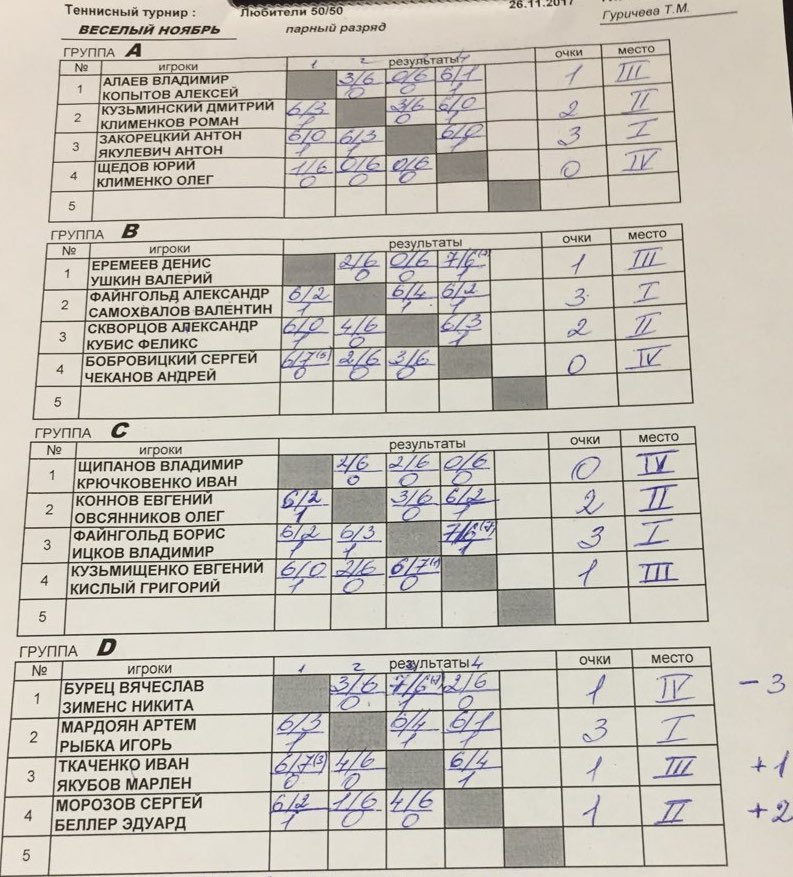 Теннисный турнир : Любители 50/50 26.11.2017
ВЕСЕЛЫЙ НОЯБРЬ парный разряд Гуричева Т.М.
ГРУППА A
№ игроки результаты очки место
1 2 4
1 АЛАЕВ ВЛАДИМИР 3/6 0/6 6/1 1 III
КОПЫТОВ АЛЕКСЕЙ 0 0 1
2 КУЗЬМИНСКИЙ ДМИТРИЙ 6/3 3/6 6/0 2 II
КЛИМЕНКОВ РОМАН 1 0 1
3 ЗАКОРЕЦКИЙ АНТОН 6/0 6/3 6/0 3 I
ЯКУЛЕВИЧ АНТОН 1 1 1
4 ЩЕДОВ ЮРИЙ 1/6 0/6 0/6 0 IV
КЛИМЕНКО ОЛЕГ 0 0 0
5
ГРУППА B
№ игроки результаты очки место
1 ЕРЕМЕЕВ ДЕНИС 2/6 0/6 7/6 1 III
УШКИН ВАЛЕРИЙ 0 0 1
2 ФАЙНГОЛЬД АЛЕКСАНДР 6/2 6/4 6/2 3 I
САМОХВАЛОВ ВАЛЕНТИН 1 1 1
3 СКВОРЦОВ АЛЕКСАНДР 6/0 4/6 6/3 2 II
КУБИС ФЕЛИКС 1 0 1
4 БОБРОВИЦКИЙ СЕРГЕЙ 6/7(5) 2/6 3/6 0 IV
ЧЕКАНОВ АНДРЕЙ 0 0 0
5
ГРУППА C
№ игроки результаты очки место
1 ЩИПАНОВ ВЛАДИМИР 2/6 2/6 0/6 0 IV
КРЮЧКОВЕНКО ИВАН 0 0 0
2 КОННОВ ЕВГЕНИЙ 6/2 3/6 6/2 2 II
ОВСЯННИКОВ ОЛЕГ 1 0 1
3 ФАЙНГОЛЬД БОРИС 6/2 6/3 7/6 3 I
ИЦКОВ ВЛАДИМИР 1 1 1
4 КУЗЬМИЩЕНКО ЕВГЕНИЙ 6/0 2/6 6/7 1 III
КИСЛЫЙ ГРИГОРИЙ 1 0 0
5
ГРУППА D
№ игроки результаты очки место
1 2 3 4
1 БУРЕЦ ВЯЧЕСЛАВ 3/6 7/6 2/6 1 IV - 3
ЗИМЕНС НИКИТА 0 1 0
2 МАРДОЯН АРТЕМ 6/3 6/4 6/1 3 I
РЫБКА ИГОРЬ 1 1 1
3 ТКАЧЕНКО ИВАН 6/7(3) 4/6 6/4 1 III +1
ЯКУБОВ МАРЛЕН 0 0 1
4 МОРОЗОВ СЕРГЕЙ 6/2 1/6 4/6 1 II +2
БЕЛЛЕР ЭДУАРД 1 0 0
5